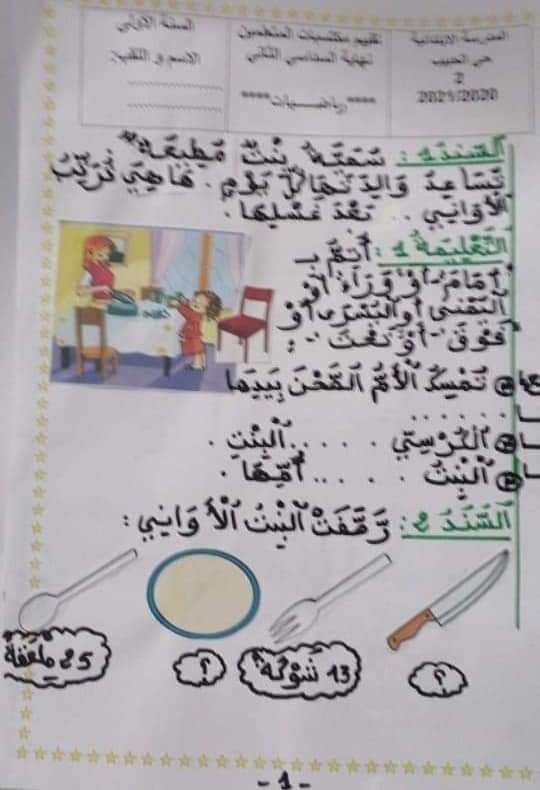 المدرسة الابتدائية
حي الحبيب
2
2021/2020
تقييم مكتسبات المتعلمين
نهاية السداسي الثاني
****رياضيات****
السنة الأولى
الاسم و اللقب:
السند 1: سميّة بنت مطيعة
تساعد والدتها كلّ يوم. ها هي ترتّب
الأواني .. بعد غسلها.
التعليمة 1: أتمّ بـ
أمام - أو وراء أو
اليمنى أو اليسرى أو
فوق - أو تحت:
تمسك الأمّ الصّحن بيدها
......
الكرسيّ ..... البنت.
البنت ..... أمّها.
السّند 2: رصّفت البنت الأواني:
25 ملعقة
؟
13 شوكة
؟
- 1 -